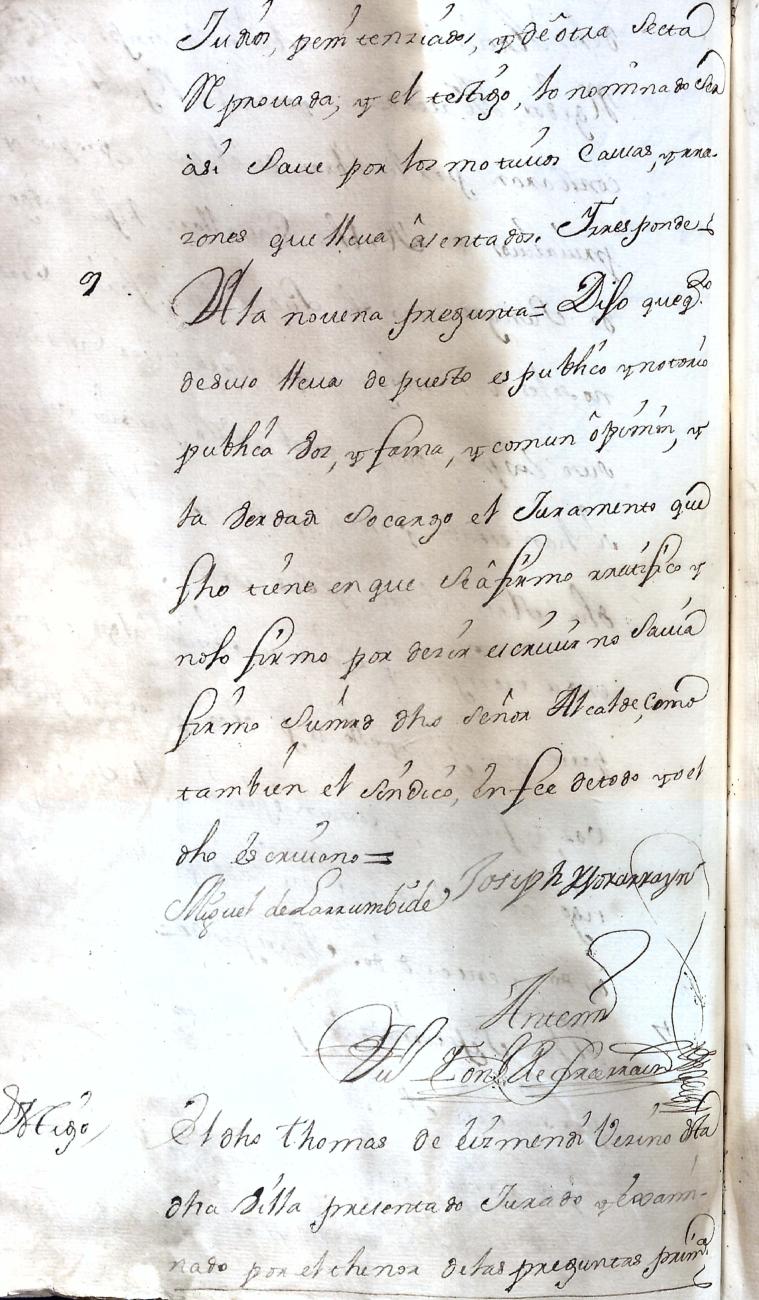 Judios, penitenziados, y de otra Secta
Reprovada, y el testigo, lo nominado ser
asi Save por los motivos Causas, y rra-
zones que lleva asentados. Y responde
9 A la novena pregunta = Dijo que q.to
desuso lleva de puesto es publico y notorio
publica voz, y fama, y comun opinion, y
la verdad Socargo el Juramento que
fho tiene en que Se afirmo rratifico y
nolo firmo por dezir escrivir no Savia
firmo Sumrd dho Señor Alcalde, como
tambien el Sindico, en fee de todo yo el
dho escrivano =
Miguel de Larrumbide Joseph
Antemi
Testigo El dho Thomas de Eizmendi Vezino dsta
dha Villa presentado Jurado y exami-
nado por el thenor de las preguntas prim.a